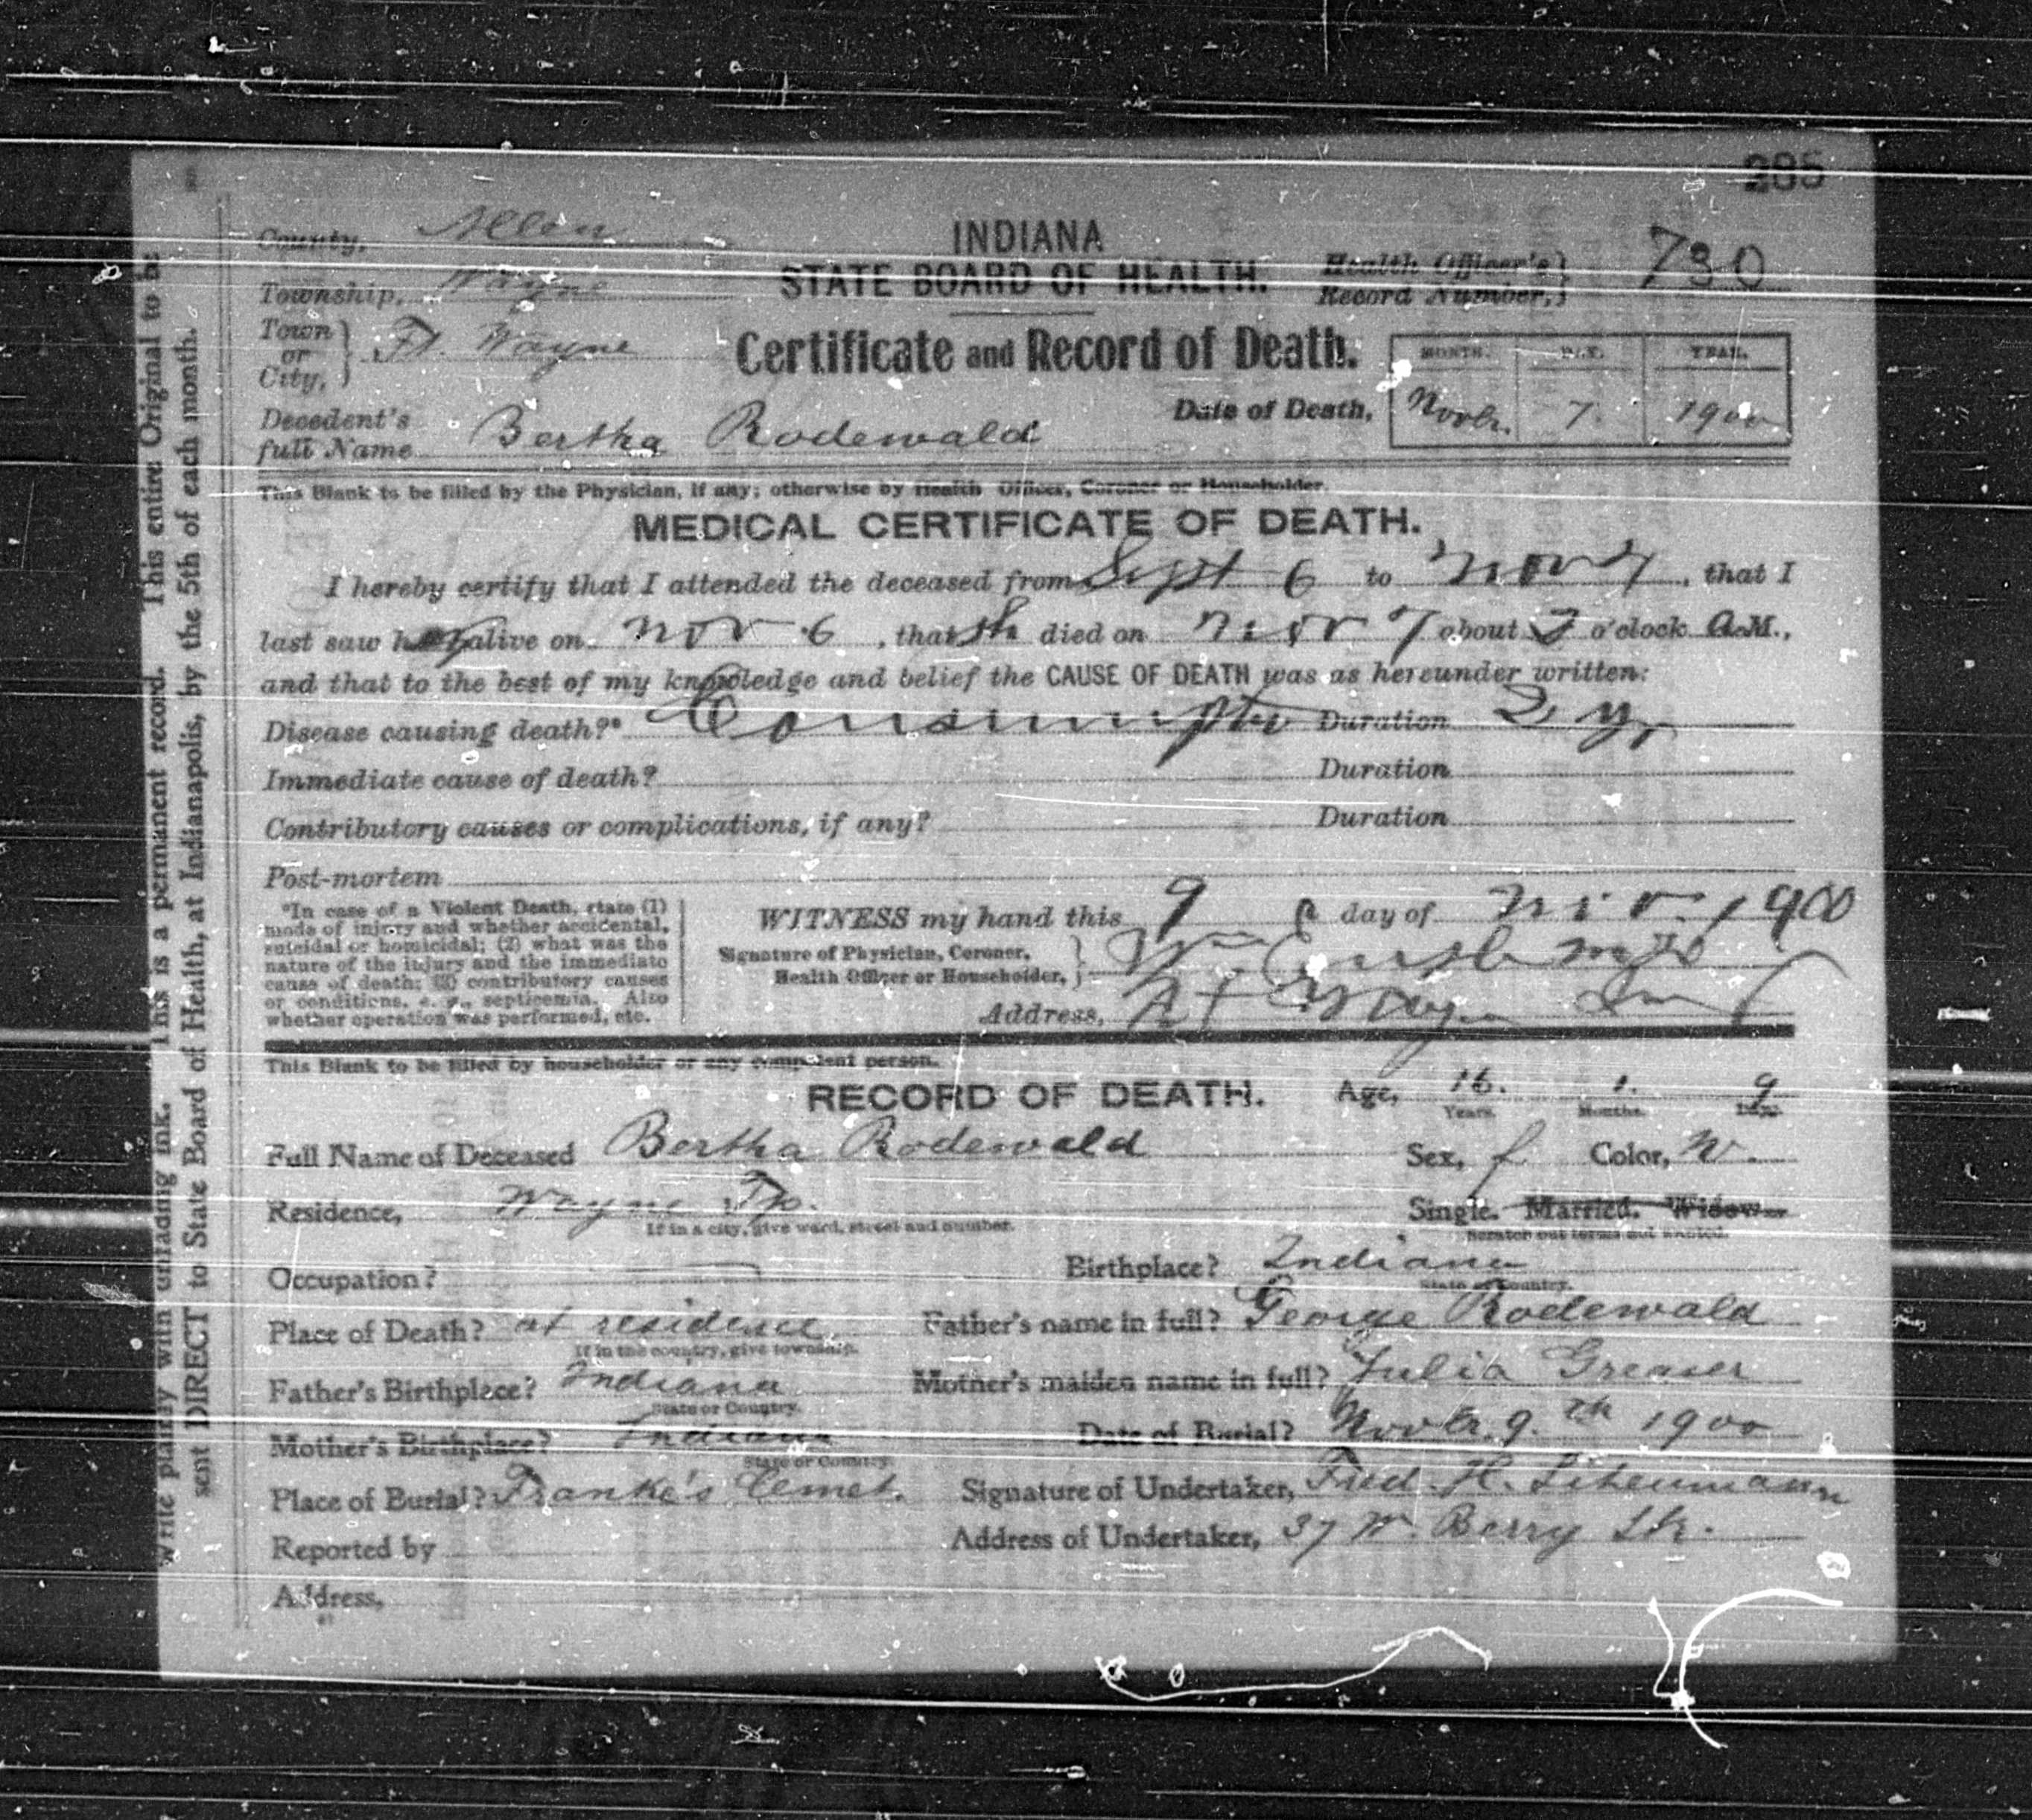 285
County, Allen
INDIANA
STATE BOARD OF HEALTH.
Health Officer's Record Number, 730
Township, Wayne
Town or City, Ft. Wayne
Certificate and Record of Death.
MONTH. DAY. YEAR.
Date of Death, Novbr. 7. 1900
Decedent's full Name Bertha Rodewald
This Blank to be filled by the Physician, if any; otherwise by Health Officer, Coroner or Householder.
MEDICAL CERTIFICATE OF DEATH.
I hereby certify that I attended the deceased from Sept 6 to Nov 7, that I
last saw her alive on Nov 6, that sh died on Nov 7 about 3 o'clock A.M.,
and that to the best of my knowledge and belief the CAUSE OF DEATH was as hereunder written:
Disease causing death?* Consumption Duration 2 yr
Immediate cause of death? Duration
Contributory causes or complications, if any? Duration
Post-mortem
*In case of a Violent Death, state (1)
mode of injury and whether accidental,
suicidal or homicidal; (2) what was the
nature of the injury and the immediate
cause of death; (3) contributory causes
or conditions, e. g., septicemia. Also
whether operation was performed, etc.
WITNESS my hand this 9 day of Nov. 1900
Signature of Physician, Coroner,
Health Officer or Householder, Wm
Address, Ft Wayne Ind
This Blank to be filled by householder or any competent person.
RECORD OF DEATH. Age, 16. 1. 9
Years. Months. Days.
Full Name of Deceased Bertha Rodewald Sex, f. Color, W.
Residence, Wayne Tp. Single. Married. Widow.
If in a city, give ward, street and number. Scratch out terms not wanted.
Occupation? Birthplace? Indiana
State or Country.
Place of Death? at residence Father's name in full? George Rodewald
If in the country, give township.
Father's Birthplace? Indiana Mother's maiden name in full? Julia Greaser
State or Country.
Mother's Birthplace? Indiana Date of Burial? Novbr. 9.th 1900
State or Country.
Place of Burial? Franke's Cemet. Signature of Undertaker, Fred. H.
Reported by Address of Undertaker, 37 W. Berry Str.
Address,
Write plainly with unfading ink. This is a permanent record. This entire Original to be
sent DIRECT to State Board of Health, at Indianapolis, by the 5th of each month.